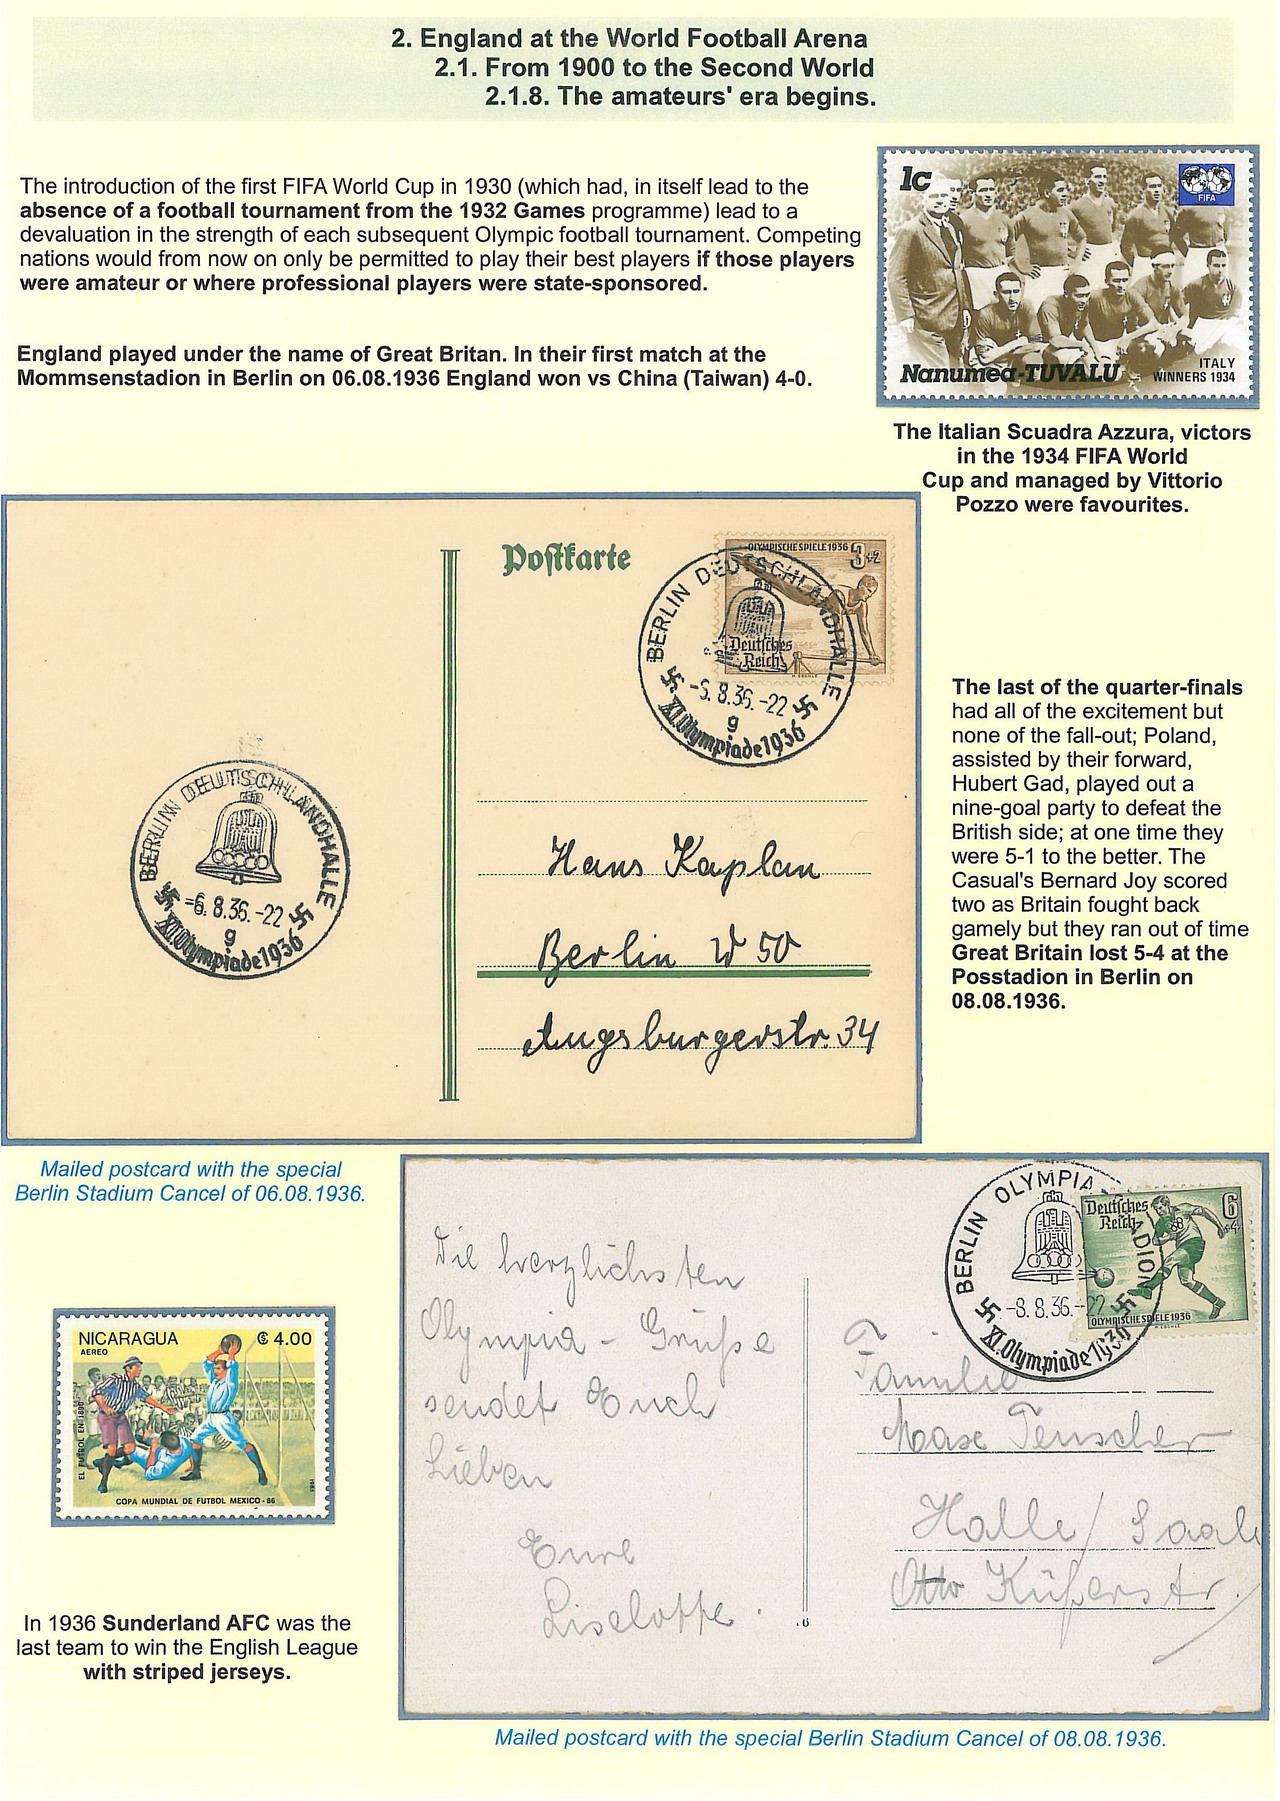 2. England at the World Football Arena
2.1. From 1900 to the Second World
2.1.8. The amateurs' era begins.
The introduction of the first FIFA World Cup in 1930 (which had, in itself lead to the
absence of a football tournament from the 1932 Games programme) lead to a
devaluation in the strength of each subsequent Olympic football tournament. Competing
nations would from now on only be permitted to play their best players if those players
were amateur or where professional players were state-sponsored.
England played under the name of Great Britan. In their first match at the
Mommsenstadion in Berlin on 06.08.1936 England won vs China (Taiwan) 4-0.
1c
FIFA
Nanumea-TUVALU
ITALY
WINNERS 1934
The Italian Scuadra Azzura, victors
in the 1934 FIFA World
Cup and managed by Vittorio
Pozzo were favourites.
Postkarte
OLYMPISCHE SPIELE 1936 3+2
Deutsches
Reich
BERLIN DEUTSCHLANDHALLE
-6.8.36.-22
g
XI. Olympiade 1936
BERLIN DEUTSCHLANDHALLE
-6.8.36.-22
g
XI. Olympiade 1936
Hans Kaplan
Berlin W 50
Augsburgerstr. 34
The last of the quarter-finals
had all of the excitement but
none of the fall-out; Poland,
assisted by their forward,
Hubert Gad, played out a
nine-goal party to defeat the
British side; at one time they
were 5-1 to the better. The
Casual's Bernard Joy scored
two as Britain fought back
gamely but they ran out of time
Great Britain lost 5-4 at the
Posstadion in Berlin on
08.08.1936.
Mailed postcard with the special
Berlin Stadium Cancel of 06.08.1936.
NICARAGUA C$ 4.00
AEREO
EL FUTBOL EN 1890
COPA MUNDIAL DE FUTBOL MEXICO-86
In 1936 Sunderland AFC was the
last team to win the English League
with striped jerseys.
BERLIN OLYMPIA STADION
-8.8.36.-22
XI. Olympiade 1936
Deutsches
Reich
6+4
OLYMPISCHE SPIELE 1936
Die herzlichsten
Olympia-Grüße
sendet Euch
Lieben
Eure
Liselotte.
Familie
Teuscher
Halle/Saale
Otto Küfnerstr.
Mailed postcard with the special Berlin Stadium Cancel of 08.08.1936.